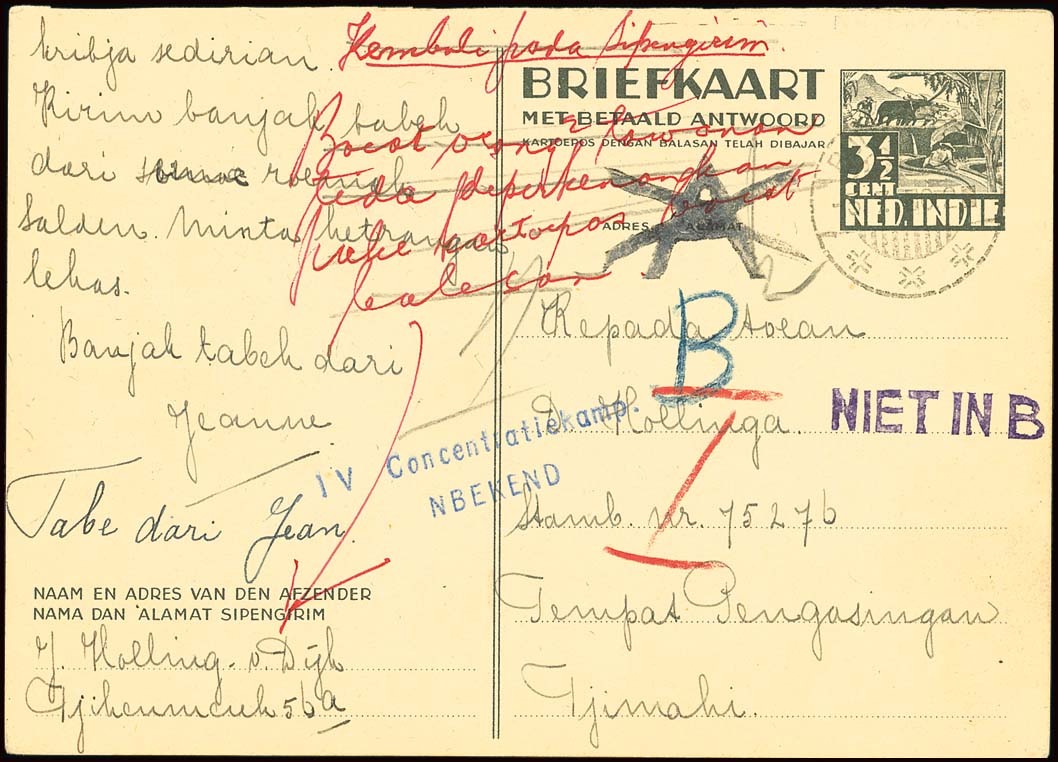 kribja sedirian.
Kirim banjak tabeh
dari roemah
Salden. Minta ketrangan
lekas.
Banjak tabeh dari
Jeanne
Tabe dari Jean.
NAAM EN ADRES VAN DEN AFZENDER
NAMA DAN ALAMAT SIPENGIRIM
J. Holling-v. Dijk
56a
Kembali pada Sipengirim.
Boeat orang2 tawanan
tida diperkenangkan
pake kartoepos boeat
balesan
BRIEFKAART
MET BETAALD ANTWOORD
KARTOEPOS DENGAN BALASAN TELAH DIBAJAR
ADRES ALAMAT
3½
CENT
NED. INDIE
Kepada toean
B
D. Hollinga.
NIET IN B
IV Concentratiekamp.
NBEKEND
Stamb. nr. 75276
Tempat Pengasingan
Tjimahi.